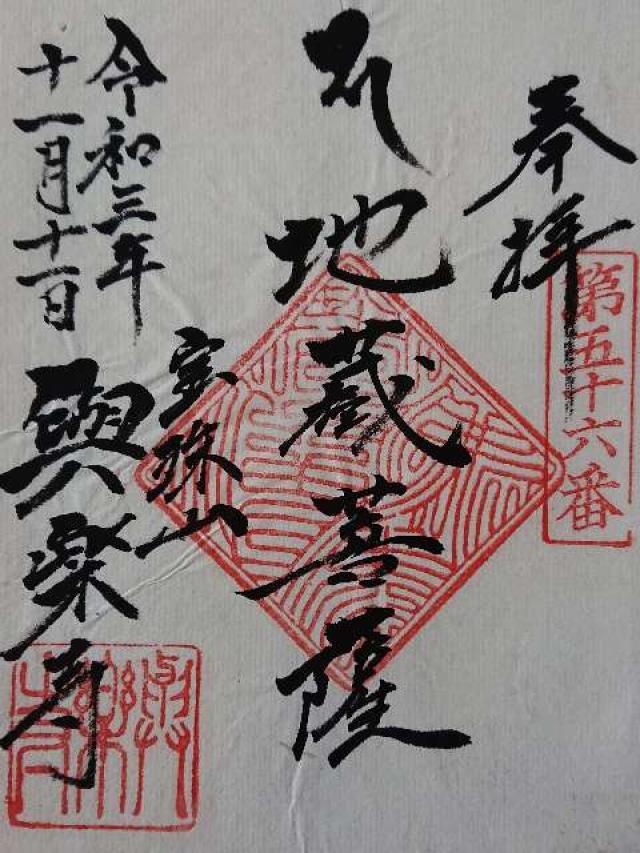 奉拝
第五十六番
地蔵菩薩
令和三年
十一月十一日
宝珠山
與楽寺